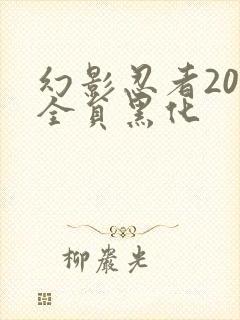 幻影忍者20
全員黑化
柳巖光